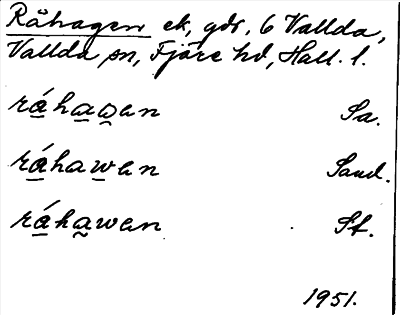 Råhagen ek, gdr. 6 Vallda,
Vallda sn, Fjäre hd, Hall. l.
ráhaꜿan Sa.
ráhawan Sand.
ráhawan St.
1951.